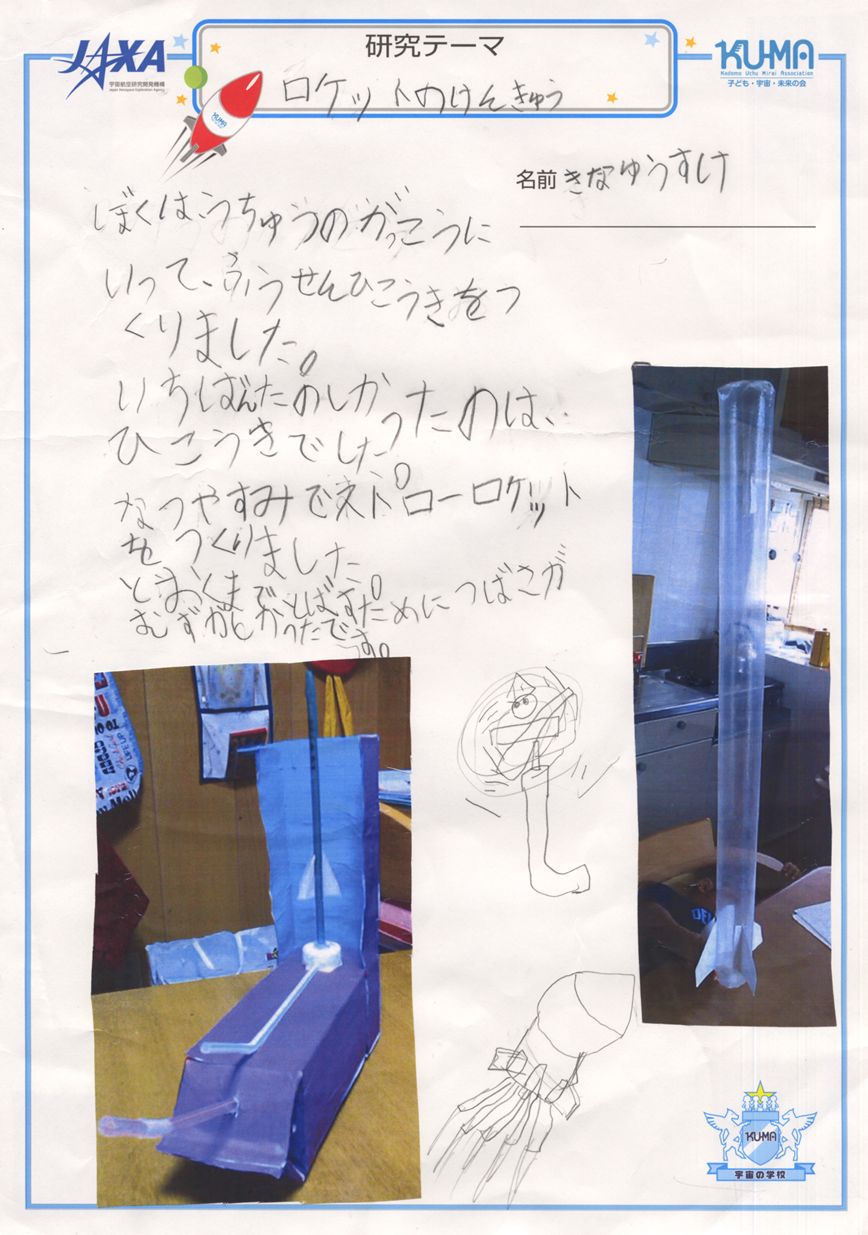 JAXA
宇宙航空研究開発機構
Japan Aerospace Exploration Agency
研究テーマ
ロケットのけんきゅう
KU-MA
Kodomo Uchu Mirai Association
子ども・宇宙・未来の会
KU-MA
名前 きなゆうすけ
ぼくは、うちゅうのがっこうに
いって、ふうせんひこうきをつ
くりました。
いちばんたのしかったのは、
ひこうきでした。
なつやすみでストローロケット
をつくりました。
とおくまでとばすためにつばさが
むずかしかったです。
KU-MA
宇宙の学校